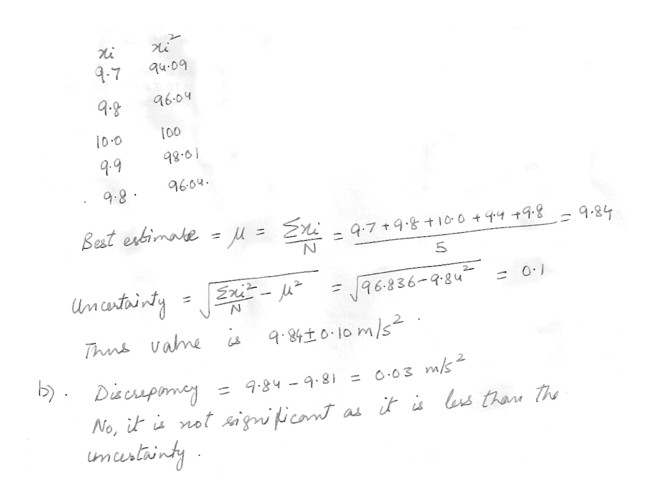 xi xi²
9.7 94.09
9.8 96.04
10.0 100
9.9 98.01
9.8. 96.04.
Best estimate = μ = Σxi/N = (9.7 + 9.8 + 10.0 + 9.9 + 9.8)/5 = 9.84
Uncertainty = √(Σxi²/N - μ²) = √(96.836 - 9.84²) = 0.1
Thus value is 9.84 ± 0.10 m/s².
b). Discrepancy = 9.84 - 9.81 = 0.03 m/s²
No, it is not significant as it is less than the
uncertainty.